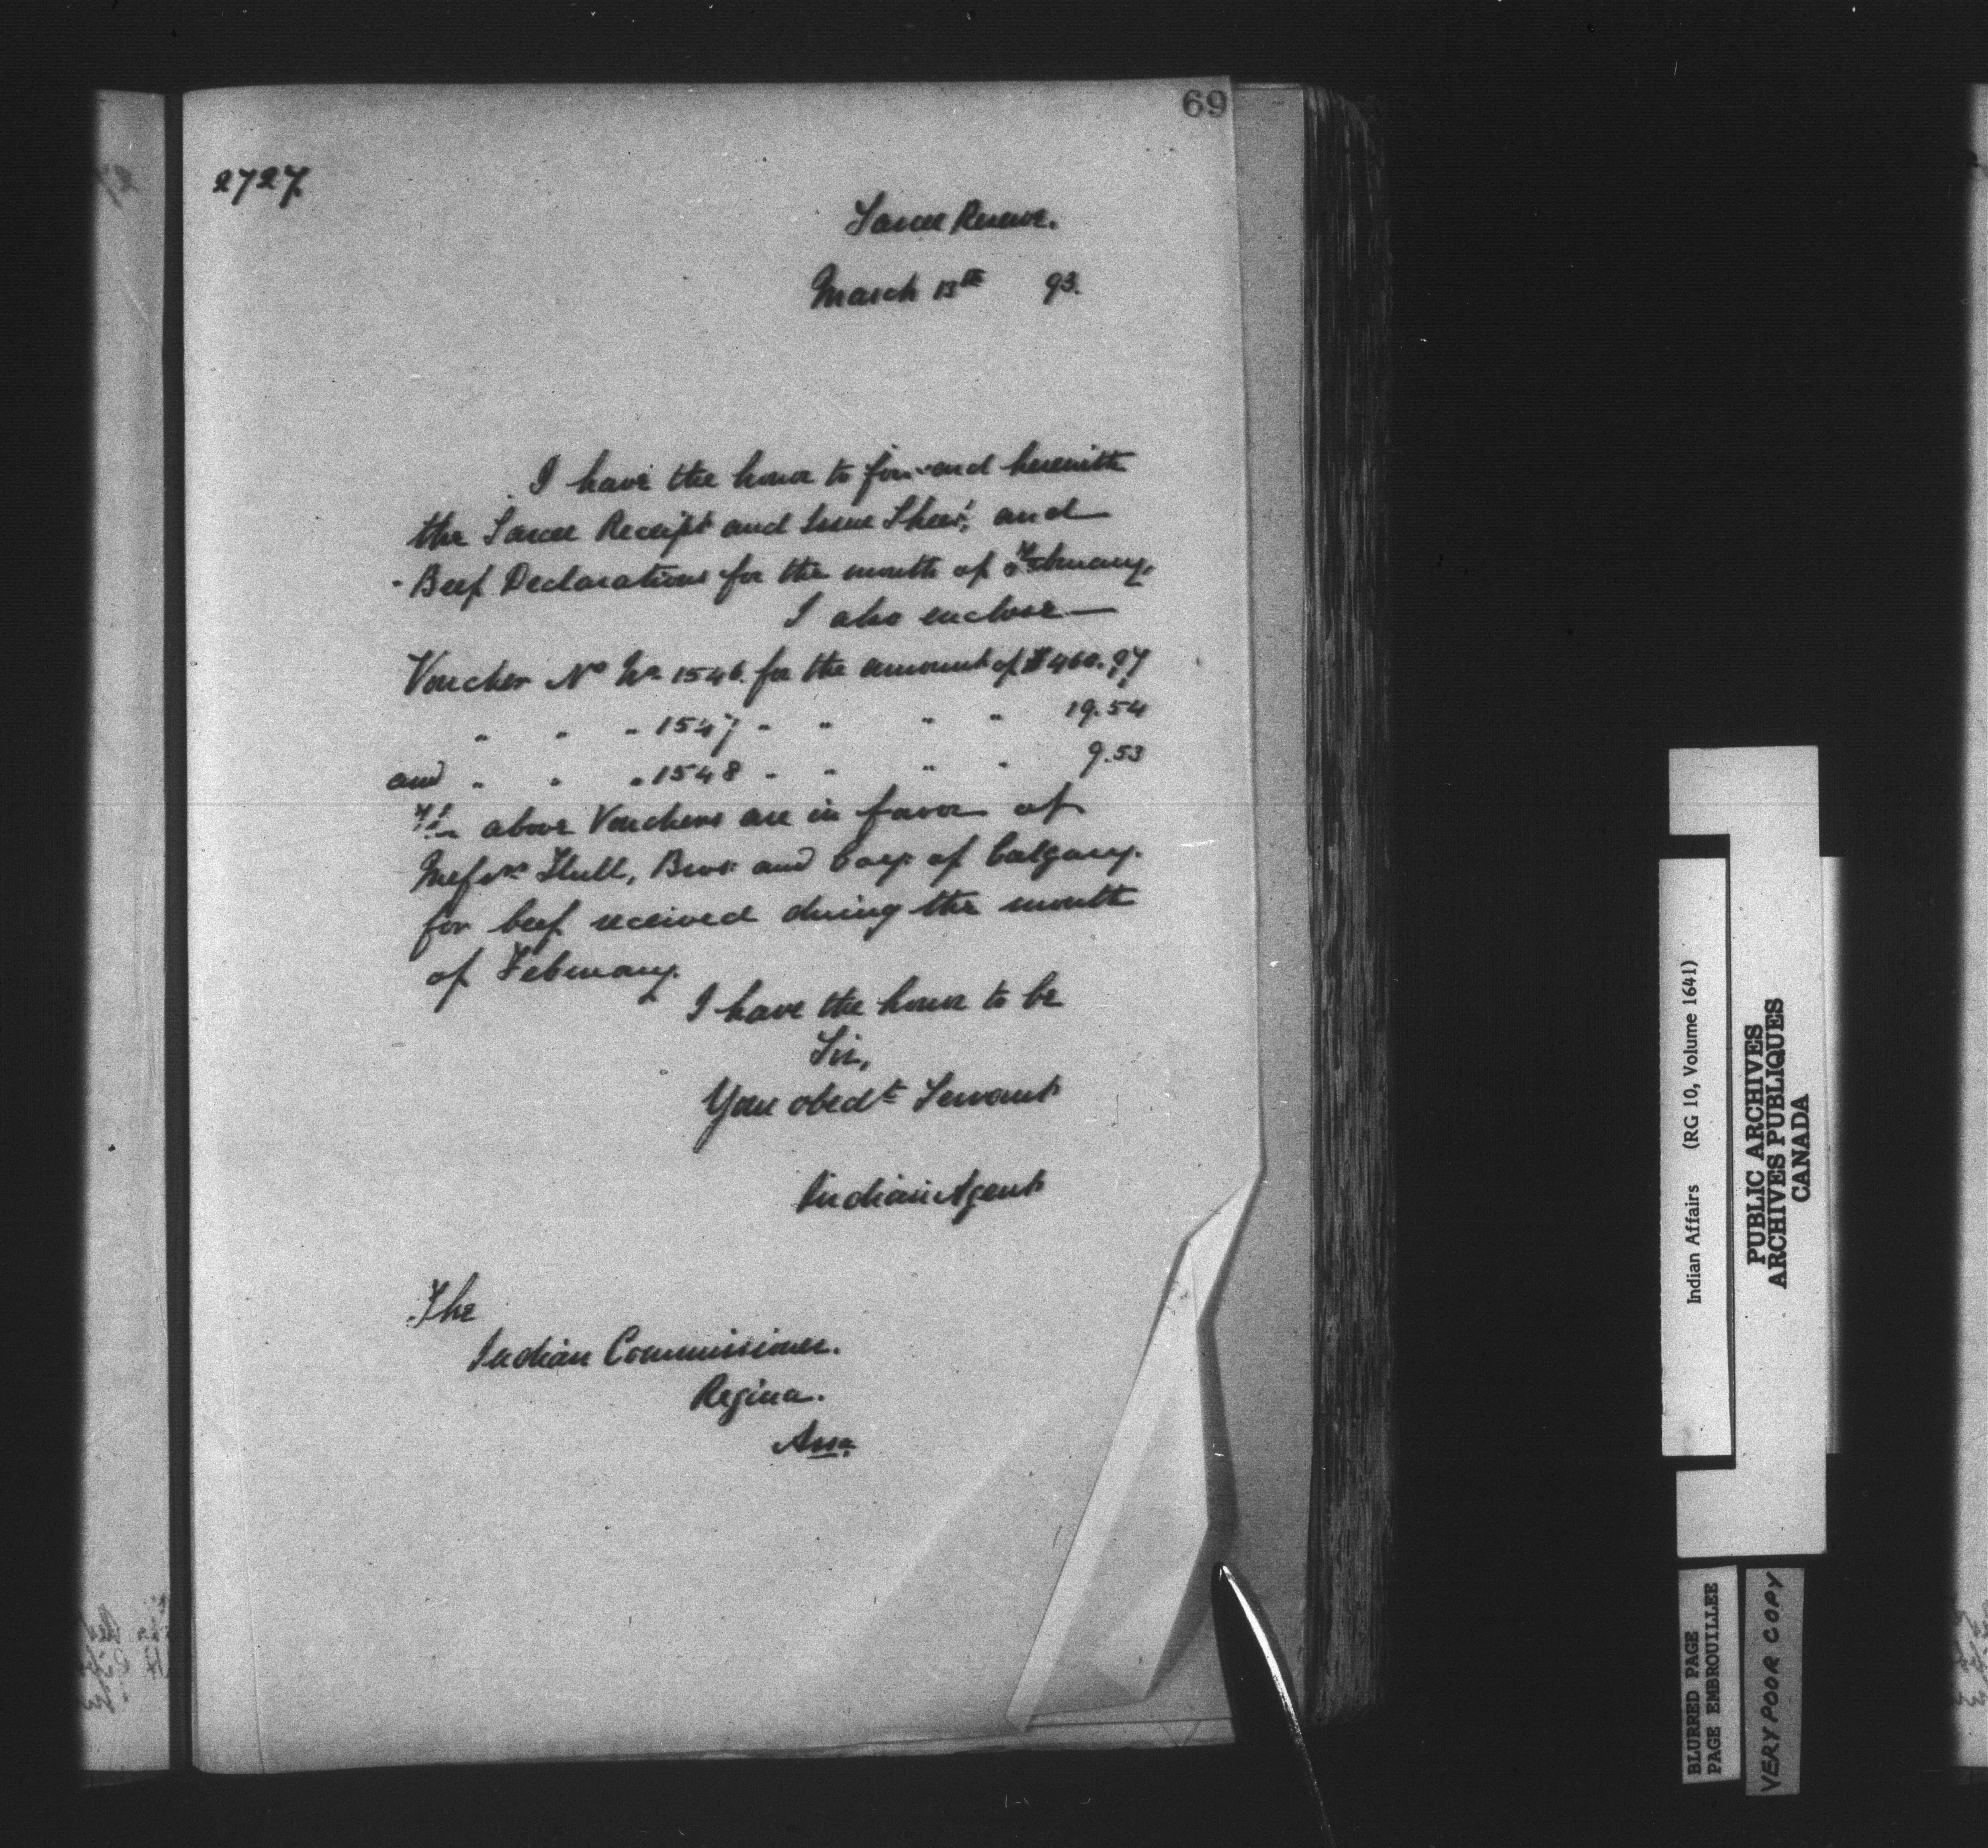 69
2727
Sarcee Reserve.
March 13th 93.
I have the honor to forward herewith
the Sarcee Receipt and Issue Sheet, and
Beef Declarations for the month of February,
I also enclose
Voucher No 1546 for the amount of $460.97
" " " 1547 " " " " 19.54
and " " " 1548 " " " " 9.53
The above Vouchers are in favor of
Messrs Hull, Bros and Coy. of Calgary.
for beef received during the month
of February.
I have the honor to be
Sir,
Your obedt Servant
Indian Agent
The
Indian Commissioner.
Regina.
Assa
Indian Affairs (RG 10, Volume 1641)
PUBLIC ARCHIVES
ARCHIVES PUBLIQUES
CANADA
BLURRED PAGE
PAGE EMBROUILLEE
VERY POOR COPY